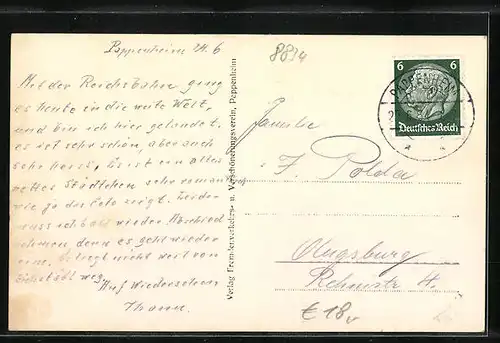 Pappenheim 24. 6
8834
Mit der Reichsbahn ging
es heute in die weite Welt,
und bin ich hier gelandet.
es ist sehr schön, aber auch
sehr heiss. Es ist ein altes
nettes Städtchen sehr romant
wie ja das Foto zeigt. Leider
muss ich bald wieder Abschied
nehmen denn es geht wieder
liegt nicht weit von
Eichstädt weg.
Auf Wiedersehen
Verlag Fremdenverkehrs- u. Verschönerungsverein, Pappenheim
6 6
Deutsches Reich
PAPPENHEIM
Familie
F. Polda
Augsburg
€ 18,-